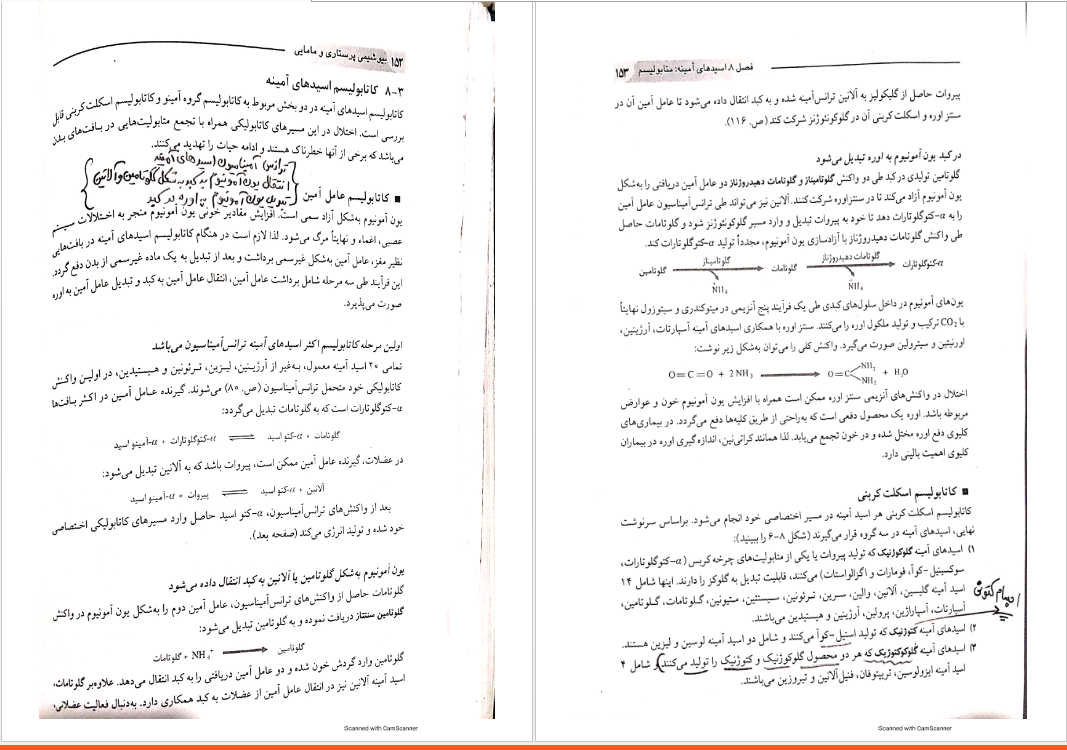 ۱۵۲ بیوشیمی پرستاری و مامایی
۸-۳ کاتابولیسم اسیدهای آمینه
کاتابولیسم اسیدهای آمینه در دو بخش مربوط به کاتابولیسم گروه آمینو و کاتابولیسم اسکلت کربنی قابل
بررسی است. اختلال در این مسیرهای کاتابولیکی همراه با تجمع متابولیت‌هایی در بافت‌های بدن
می‌باشد که برخی از آنها خطرناک هستند و ادامه حیات را تهدید می‌کنند.
ترانس آمیناسیون اسیدهای آمینه
انتقال یون آمونیوم به کبد به شکل گلوتامین و آلانین
تبدیل یون آمونیوم به اوره در کبد
■ کاتابولیسم عامل آمین
یون آمونیوم به‌شکل آزاد سمی است. افزایش مقادیر خونی یون آمونیوم منجر به اختلالات سیستم
عصبی، اغماء و نهایتاً مرگ می‌شود. لذا لازم است در هنگام کاتابولیسم اسیدهای آمینه در بافت‌هایی
نظیر مغز، عامل آمین به‌شکل غیرسمی برداشت و بعد از تبدیل به یک ماده غیرسمی از بدن دفع گردد.
این فرآیند طی سه مرحله شامل برداشت عامل آمین، انتقال عامل آمین به کبد و تبدیل عامل آمین به اوره
صورت می‌پذیرد.
اولین مرحله کاتابولیسم اکثر اسیدهای آمینه ترانس‌آمیناسیون می‌باشد
تمامی ۲۰ اسید آمینه معمول، به‌غیر از آرژینین، لیزین، ترئونین و هیستیدین، در اولین واکنش
کاتابولیکی خود متحمل ترانس‌آمیناسیون (ص. ۸۰) می‌شوند. گیرنده عامل آمین در اکثر بافت‌ها
α-کتوگلوتارات است که به گلوتامات تبدیل می‌گردد:
گلوتامات + α-کتو اسید ⇌ α-کتوگلوتارات + α-آمینو اسید
در عضلات، گیرنده عامل آمین ممکن است، پیروات باشد که به آلانین تبدیل می‌شود:
آلانین + α-کتو اسید ⇌ پیروات + α-آمینو اسید
بعد از واکنش‌های ترانس‌آمیناسیون، α-کتو اسید حاصل وارد مسیرهای کاتابولیکی اختصاصی
خود شده و تولید انرژی می‌کند (صفحه بعد).
یون آمونیوم به‌شکل گلوتامین یا آلانین به کبد انتقال داده می‌شود
گلوتامات حاصل از واکنش‌های ترانس‌آمیناسیون، عامل آمین دوم را به‌شکل یون آمونیوم در واکنش
گلوتامین سنتتاز دریافت نموده و به گلوتامین تبدیل می‌شود:
گلوتامین ← NH₄⁺ + گلوتامات
گلوتامین وارد گردش خون شده و دو عامل آمین دریافتی را به کبد انتقال می‌دهد. علاوه‌بر گلوتامات،
اسید آمینه آلانین نیز در انتقال عامل آمین از عضلات به کبد همکاری دارد. به‌دنبال فعالیت عضلانی،
Scanned with CamScanner
فصل ۸ اسیدهای آمینه: متابولیسم ۱۵۳
پیروات حاصل از گلیکولیز به آلانین ترانس‌آمینه شده و به کبد انتقال داده می‌شود تا عامل آمین آن در
سنتز اوره و اسکلت کربنی آن در گلوکونئوژنز شرکت کند (ص. ۱۱۶).
در کبد یون آمونیوم به اوره تبدیل می‌شود
گلوتامین تولیدی در کبد طی دو واکنش گلوتامیناز و گلوتامات دهیدروژناز دو عامل آمین دریافتی را به‌شکل
یون آمونیوم آزاد می‌کند تا در سنتز اوره شرکت کنند. آلانین نیز می‌تواند طی ترانس‌آمیناسیون عامل آمین
را به α-کتوگلوتارات دهد تا خود به پیروات تبدیل و وارد مسیر گلوکونئوژنز شود و گلوتامات حاصل
طی واکنش گلوتامات دهیدروژناز با آزادسازی یون آمونیوم، مجدداً تولید α-کتوگلوتارات کند.
گلوتامیناز گلوتامات دهیدروژناز
گلوتامین گلوتامات α-کتوگلوتارات
NH₄ NH₄
یون‌های آمونیوم در داخل سلول‌های کبدی طی یک فرآیند پنج آنزیمی در میتوکندری و سیتوزول نهایتاً
با CO₂ ترکیب و تولید ملکول اوره را می‌کنند. سنتز اوره با همکاری اسیدهای آمینه آسپارتات، آرژینین،
اورنیتین و سیترولین صورت می‌گیرد. واکنش کلی را می‌توان به‌شکل زیر نوشت:
O=C=O + 2NH₃ → O=C NH₂ NH₂ + H₂O
اختلال در واکنش‌های آنزیمی سنتز اوره ممکن است همراه با افزایش یون آمونیوم خون و عوارض
مربوطه باشد. اوره یک محصول دفعی است که به‌راحتی از طریق کلیه‌ها دفع می‌گردد. در بیماری‌های
کلیوی دفع اوره مختل شده و در خون تجمع می‌یابد. لذا همانند کراتی‌نین، اندازه‌گیری اوره در بیماران
کلیوی اهمیت بالینی دارد.
■ کاتابولیسم اسکلت کربنی
کاتابولیسم اسکلت کربنی هر اسید آمینه در مسیر اختصاصی خود انجام می‌شود. براساس سرنوشت
نهایی، اسیدهای آمینه در سه گروه قرار می‌گیرند (شکل ۸-۶ را ببینید):
۱) اسیدهای آمینه گلوکوژنیک که تولید پیروات یا یکی از متابولیت‌های چرخه کربس (α-کتوگلوتارات،
سوکسینیل-کوآ، فومارات و اگزالواستات) می‌کنند، قابلیت تبدیل به گلوکز را دارند. اینها شامل ۱۴
اسید آمینه گلیسین، آلانین، والین، سرین، ترئونین، سیستئین، متیونین، گلوتامات، گلوتامین،
آسپارتات، آسپاراژین، پرولین، آرژینین و هیستیدین می‌باشند.
۲) اسیدهای آمینه کتوژنیک که تولید استیل-کوآ می‌کنند و شامل دو اسید آمینه لوسین و لیزین هستند.
۳) اسیدهای آمینه گلوکوکتوژنیک که هر دو محصول گلوکوژنیک و کتوژنیک را تولید می‌کنند و شامل ۴
اسید آمینه ایزولوسین، تریپتوفان، فنیل‌آلانین و تیروزین می‌باشند.
Scanned with CamScanner